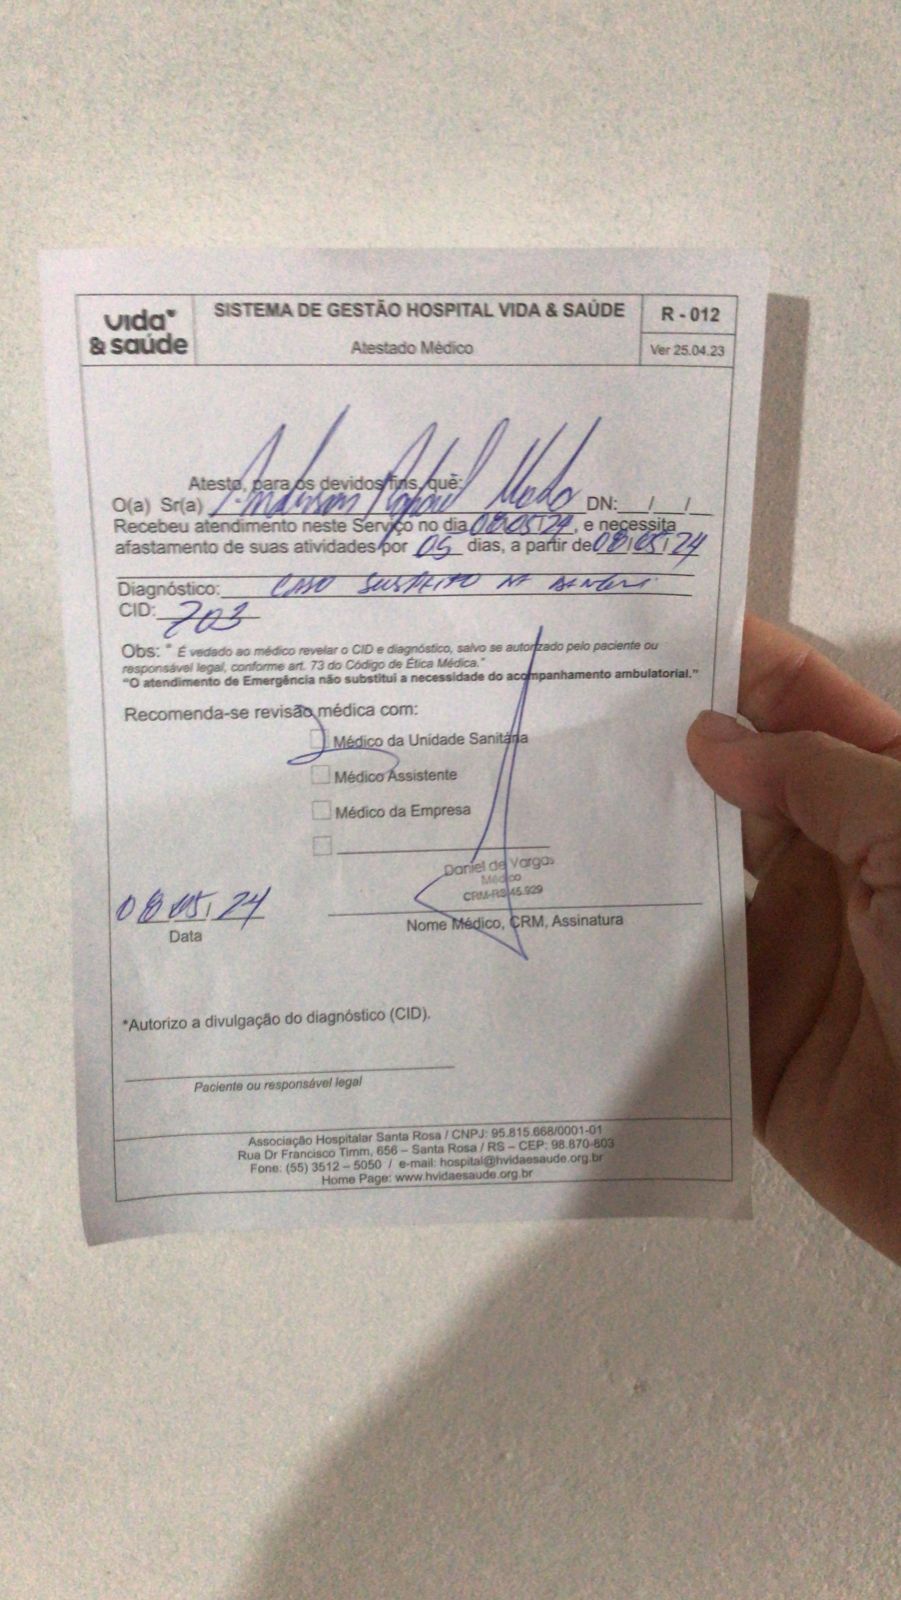 vida
& saúde
SISTEMA DE GESTÃO HOSPITAL VIDA & SAÚDE
Atestado Médico
R - 012
Ver 25.04.23
Atesto, para os devidos fins, que:
O(a) Sr(a) Anderson Rafael DN: / /
Recebeu atendimento neste Serviço no dia 08/05/24, e necessita
afastamento de suas atividades por 05 dias, a partir de 08/05/24
Diagnóstico: CASO SUSPEITO DE DENGUE
CID: Z03
Obs: " É vedado ao médico revelar o CID e diagnóstico, salvo se autorizado pelo paciente ou
responsável legal, conforme art. 73 do Código de Ética Médica."
"O atendimento de Emergência não substitui a necessidade do acompanhamento ambulatorial."
Recomenda-se revisão médica com:
Médico da Unidade Sanitária
Médico Assistente
Médico da Empresa
Daniel de Vargas
Médico
CRM-RS 45.929
08/05/24
Data
Nome Médico, CRM, Assinatura
*Autorizo a divulgação do diagnóstico (CID).
Paciente ou responsável legal
Associação Hospitalar Santa Rosa / CNPJ: 95.815.668/0001-01
Rua Dr Francisco Timm, 656 – Santa Rosa / RS – CEP: 98.870-803
Fone: (55) 3512 – 5050 / e-mail: hospital@hvidaesaude.org.br
Home Page: www.hvidaesaude.org.br